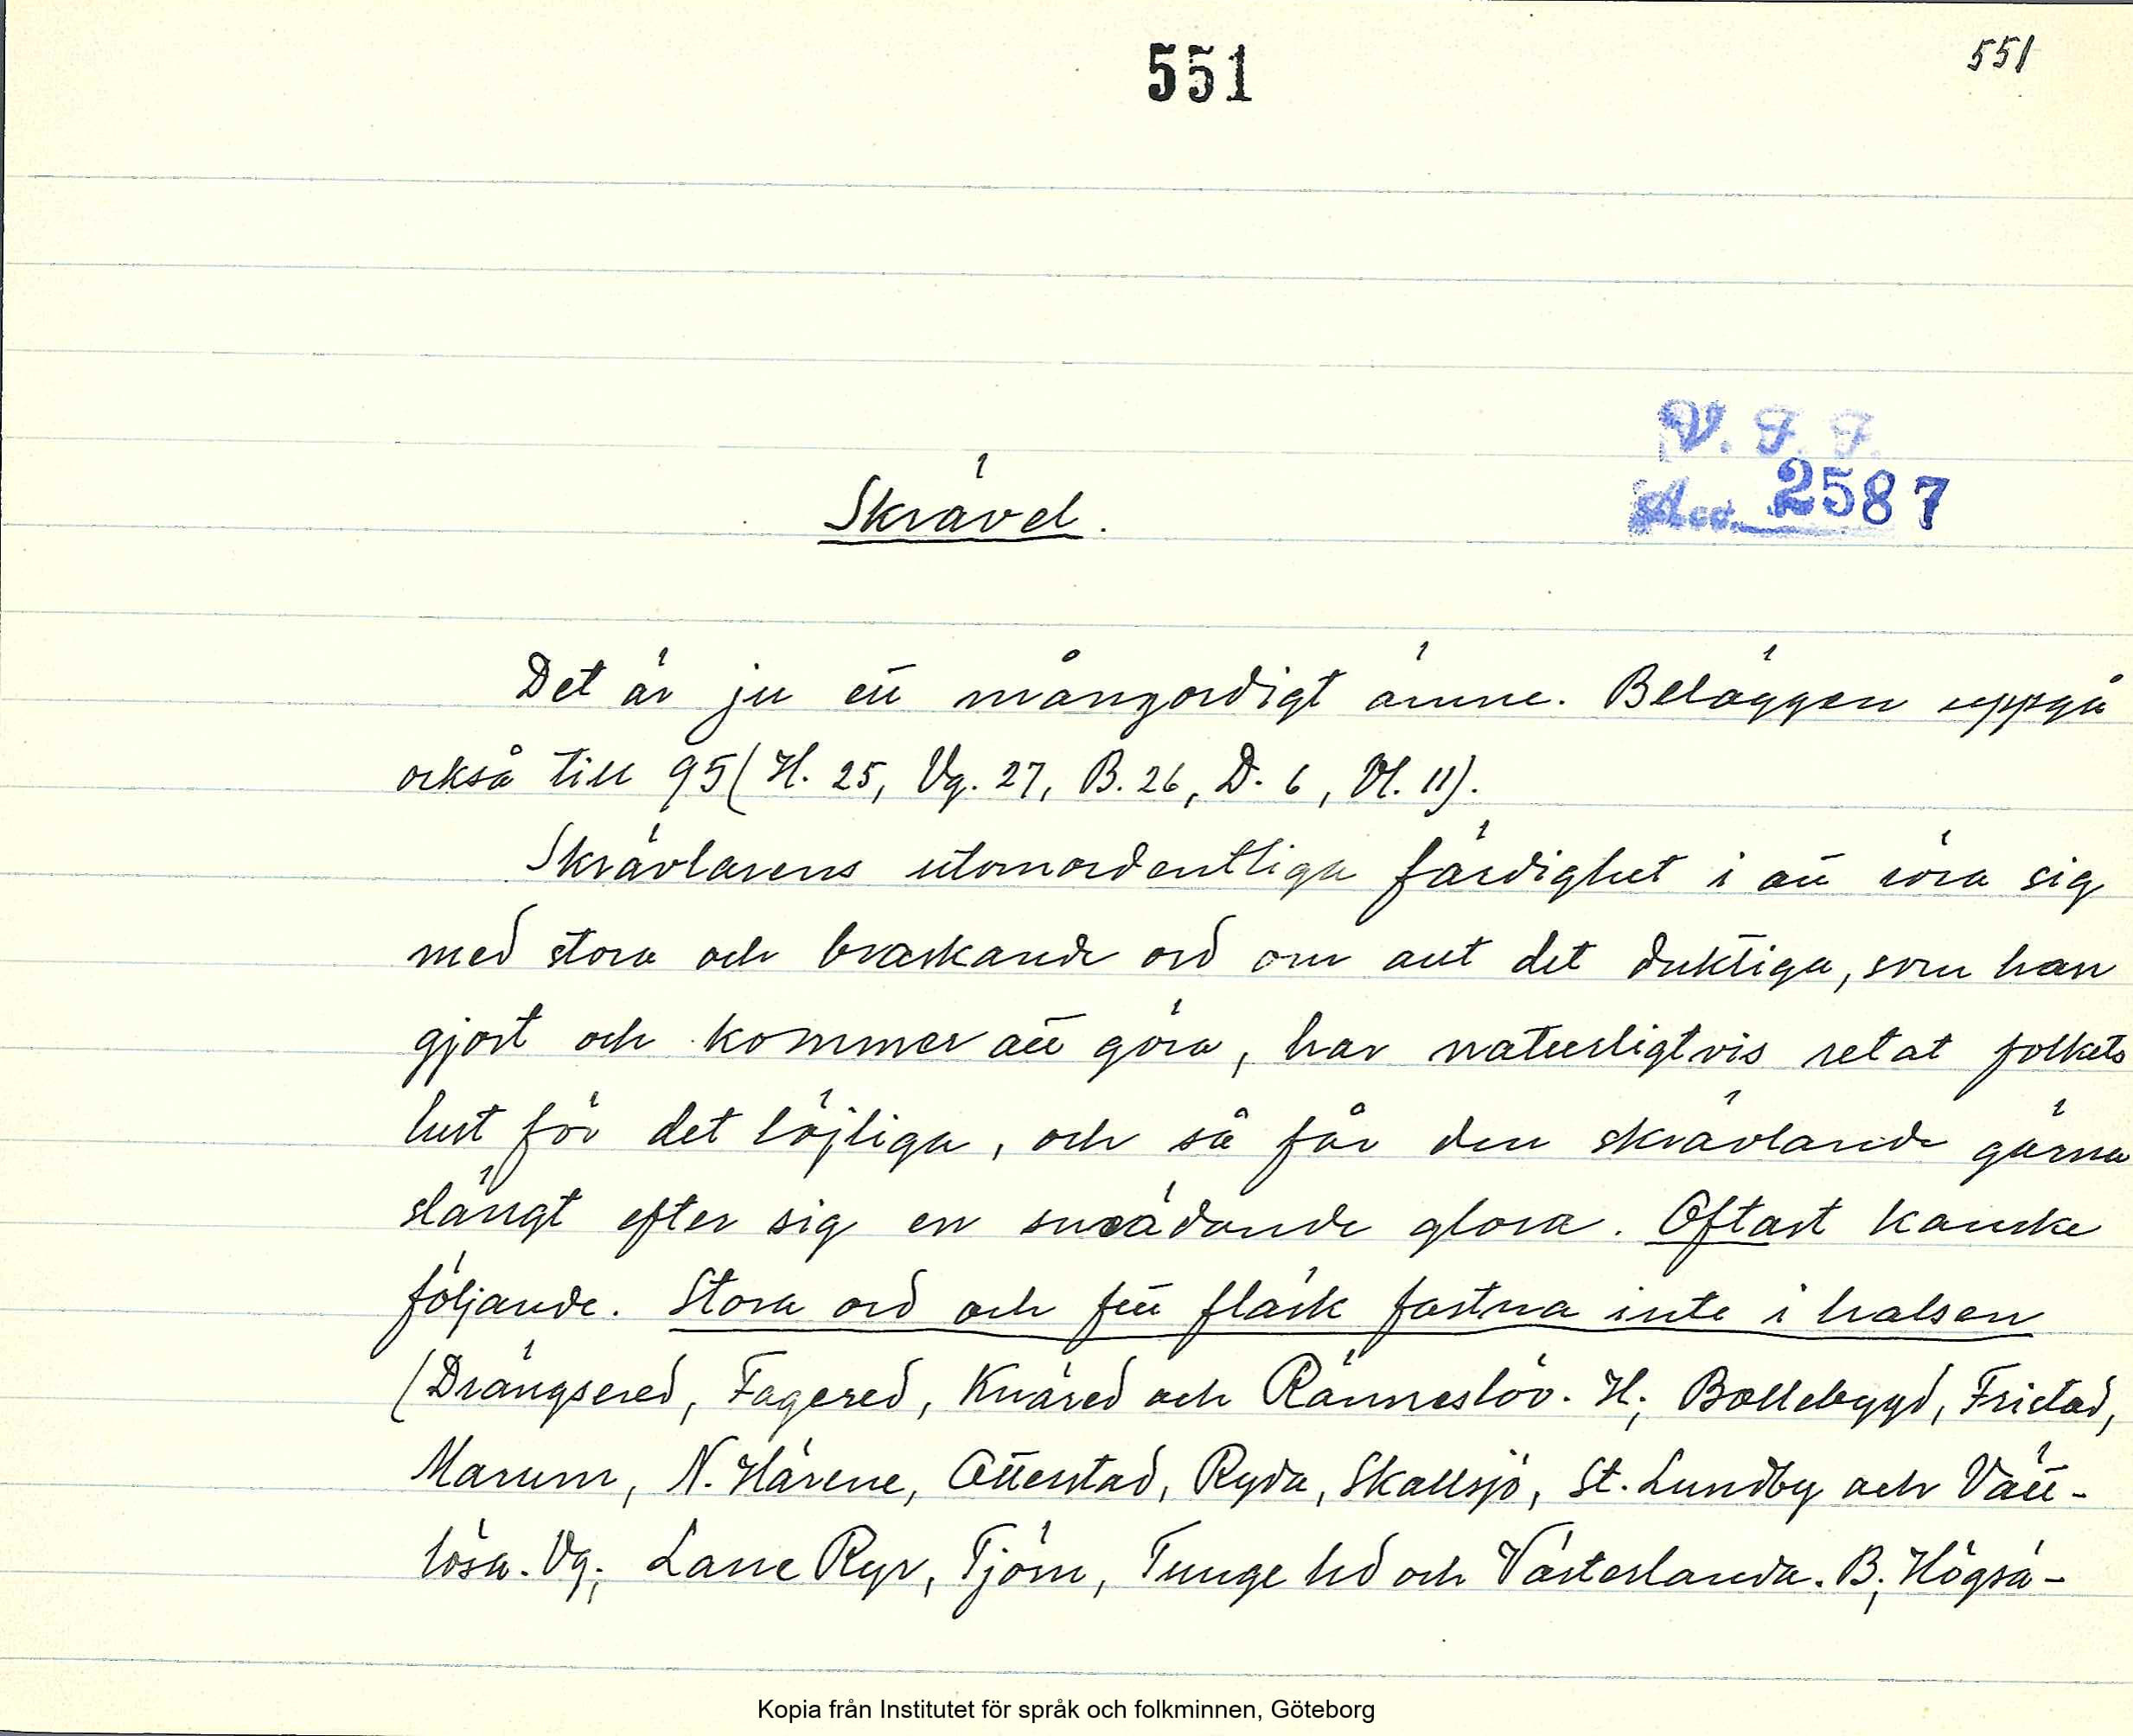 551
551
V. F. F.
Acc. 2587
Skrävel.
Det är ju ett mångordigt ämne. Beläggen uppgå
också till 95 (H. 25, Vg. 27, B. 26, D. 6, Vl. 11).
Skrävlarens utomordentliga färdighet i att röra sig
med stora och braskande ord om allt det duktiga, som han
gjort och kommer att göra, har naturligtvis retat folkets
lust för det löjliga, och så får den skrävlande gärna
slängt efter sig en smädande glosa. Oftast kanske
följande. Stora ord och fett fläsk fastna inte i halsen
(Drängsered, Fagered, Knäred och Ränneslöv. H; Bollebygd, Fristad,
Marum, N. Härene, Otterstad, Ryda, Skallsjö, St. Lundby och Vätt-
lösa. Vg; Lane Ryr, Tjörn, Tunge hd och Västerlanda. B; Högsä-
Kopia från Institutet för språk och folkminnen, Göteborg